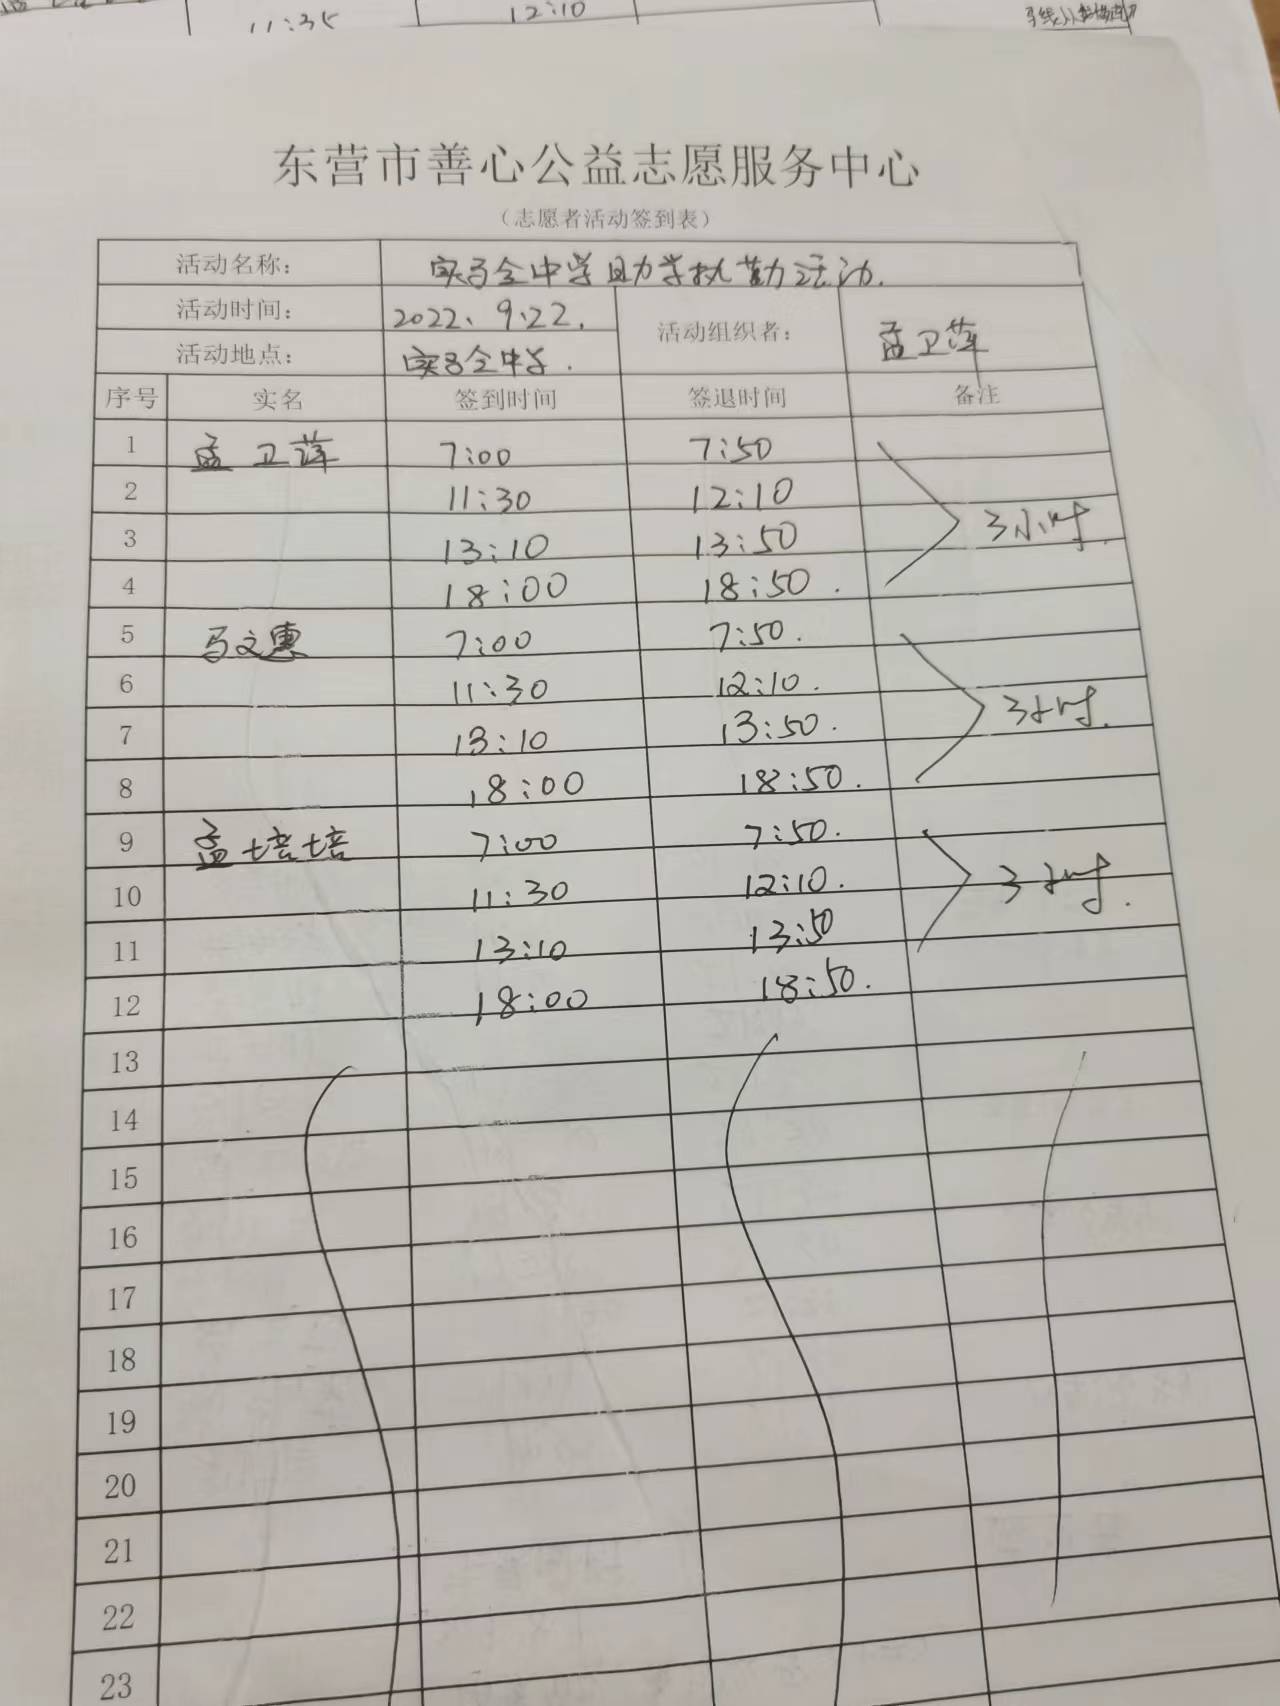 11:35 12:10
东营市善心公益志愿服务中心
（志愿者活动签到表）
活动名称： 实验中学助学执勤活动.
活动时间： 2022、9.22.
活动组织者： 孟卫萍
活动地点： 中学.
序号 实名 签到时间 签退时间 备注
1 孟卫萍 7:00 7:50
2 11:30 12:10
3 13:10 13:50 3小时.
4 18:00 18:50.
5 马文惠 7:00 7:50.
6 11:30 12:10.
7 13:10 13:50. 3小时.
8 18:00 18:50.
9 孟培培 7:00 7:50.
10 11:30 12:10. 3小时.
11 13:10 13:50
12 18:00 18:50.
13
14
15
16
17
18
19
20
21
22
23